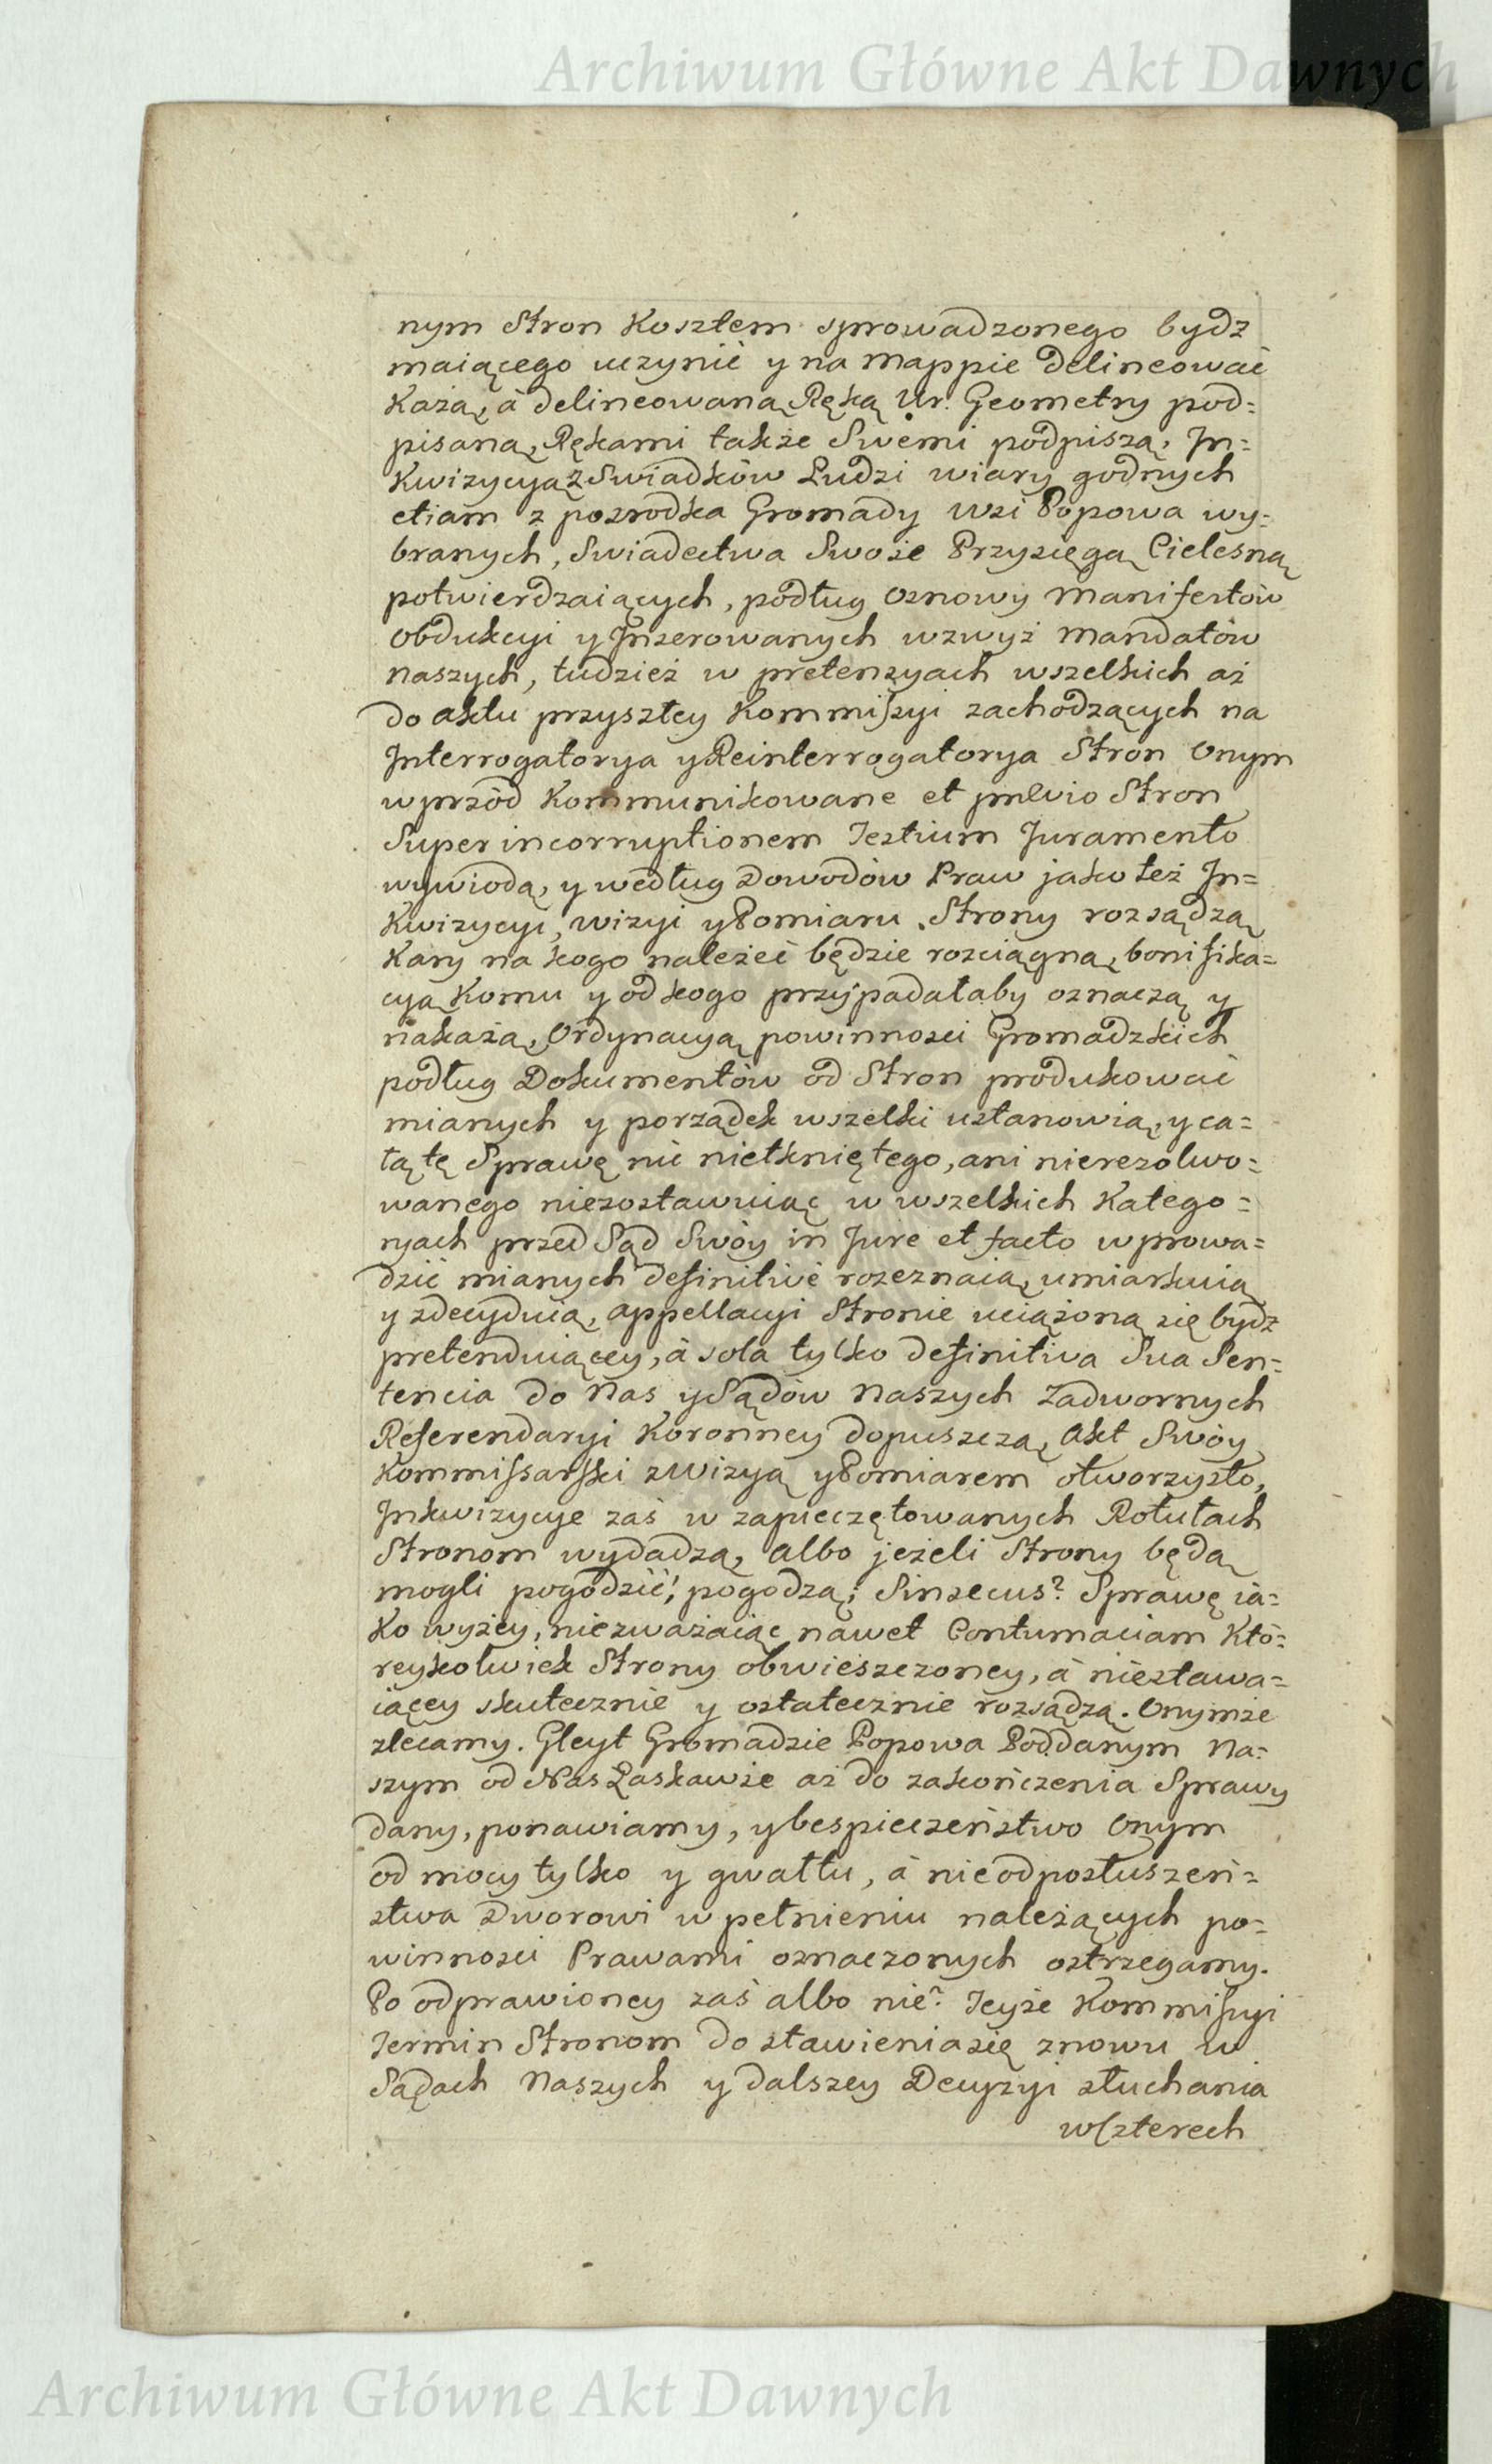 Archiwum Główne Akt Dawnych
nym Stron Kosztem sprowadzonego bydz
maiącego uczynić y na Mappie delineować
Każą, à delineowaną Ręką Ur. Geometry pod=
pisaną, Rękami także Swemi podpiszą, In=
Kwizycyą z Swiadków Ludzi wiary godnych
etiam z pozrodka Gromady Wsi Popowa wy=
branych, Swiadectwa Swoie Przysięgą Cielesną
potwierdzaiących, podług Osnowy Manifestów
Obdukcyi y Inserowanych wzwyż Mandatów
Naszych, tudzież w pretensyach wszelkich aż
do aktu przyszłey Kommissyi zachodzących na
Interrogatorya y Reinterrogatorya Stron Onym
wprzód Kommunikowane et prævio Stron
Super incorruptionem Testium Juramento
wywiodą, y według Dowodów Praw jako też In=
Kwizycyi, wizyi y Pomiaru Strony rozsądzą
Kary na kogo należeć będzie rozciągną, bonifika=
cyą Komu y od kogo przypadałaby oznaczą y
nakażą, Ordynacyą powinnosci Gromadzkich
podług Dokumentów od Stron produkować
mianych y porządek wszelki ustanowią, y ca=
łą tę Sprawę nic nietkniętego, ani nierezolwo=
wanego niezostawuiąc w wszelkich Katego=
ryach przed Sąd Swóy in Jure et facto wprowa=
dzić mianych definitivè rozeznaią, umiarkuią
y zdecyduią, appellacyi Stronie uciążoną się bydz
pretenduiącey, à sola tylko definitiva Sua Sen=
tencia do Nas y Sądów Naszych Zadwornych
Referendaryi Koronney dopuszczą, Akt Swóy
Kommissarski z Wizyą y Pomiarem otworzysto,
Inkwizycye zaś w zapieczętowanych Rotułach
Stronom wydadzą, albo jeżeli Strony będą
mogli pogodzić! pogodzą; Sinsecus? Sprawę ia=
ko wyżey, niezważaiąc nawet Contumaciam Któ=
reykolwiek Strony obwieszczoney, à niestawa=
iącey skutecznie y ostatecznie rozsądzą. Onymże
zlecamy. Gleyt Gromadzie Popowa Poddanym Na=
szym od Nas Łaskawie aż do zakończenia Sprawy
dany, ponawiamy, y bespieczeństwo Onym
od mocy tylko y gwałtu, à nie odposłuszeń=
stwa Dworowi w pełnieniu należących po=
winnosci Prawami oznaczonych ostrzegamy.
Po odprawioney zaś albo nie? Teyże Kommissyi
Termin Stronom do stawienia się znowu w
Sądach Naszych y dalszey Decyzyi słuchania
w Czterech
Archiwum Główne Akt Dawnych